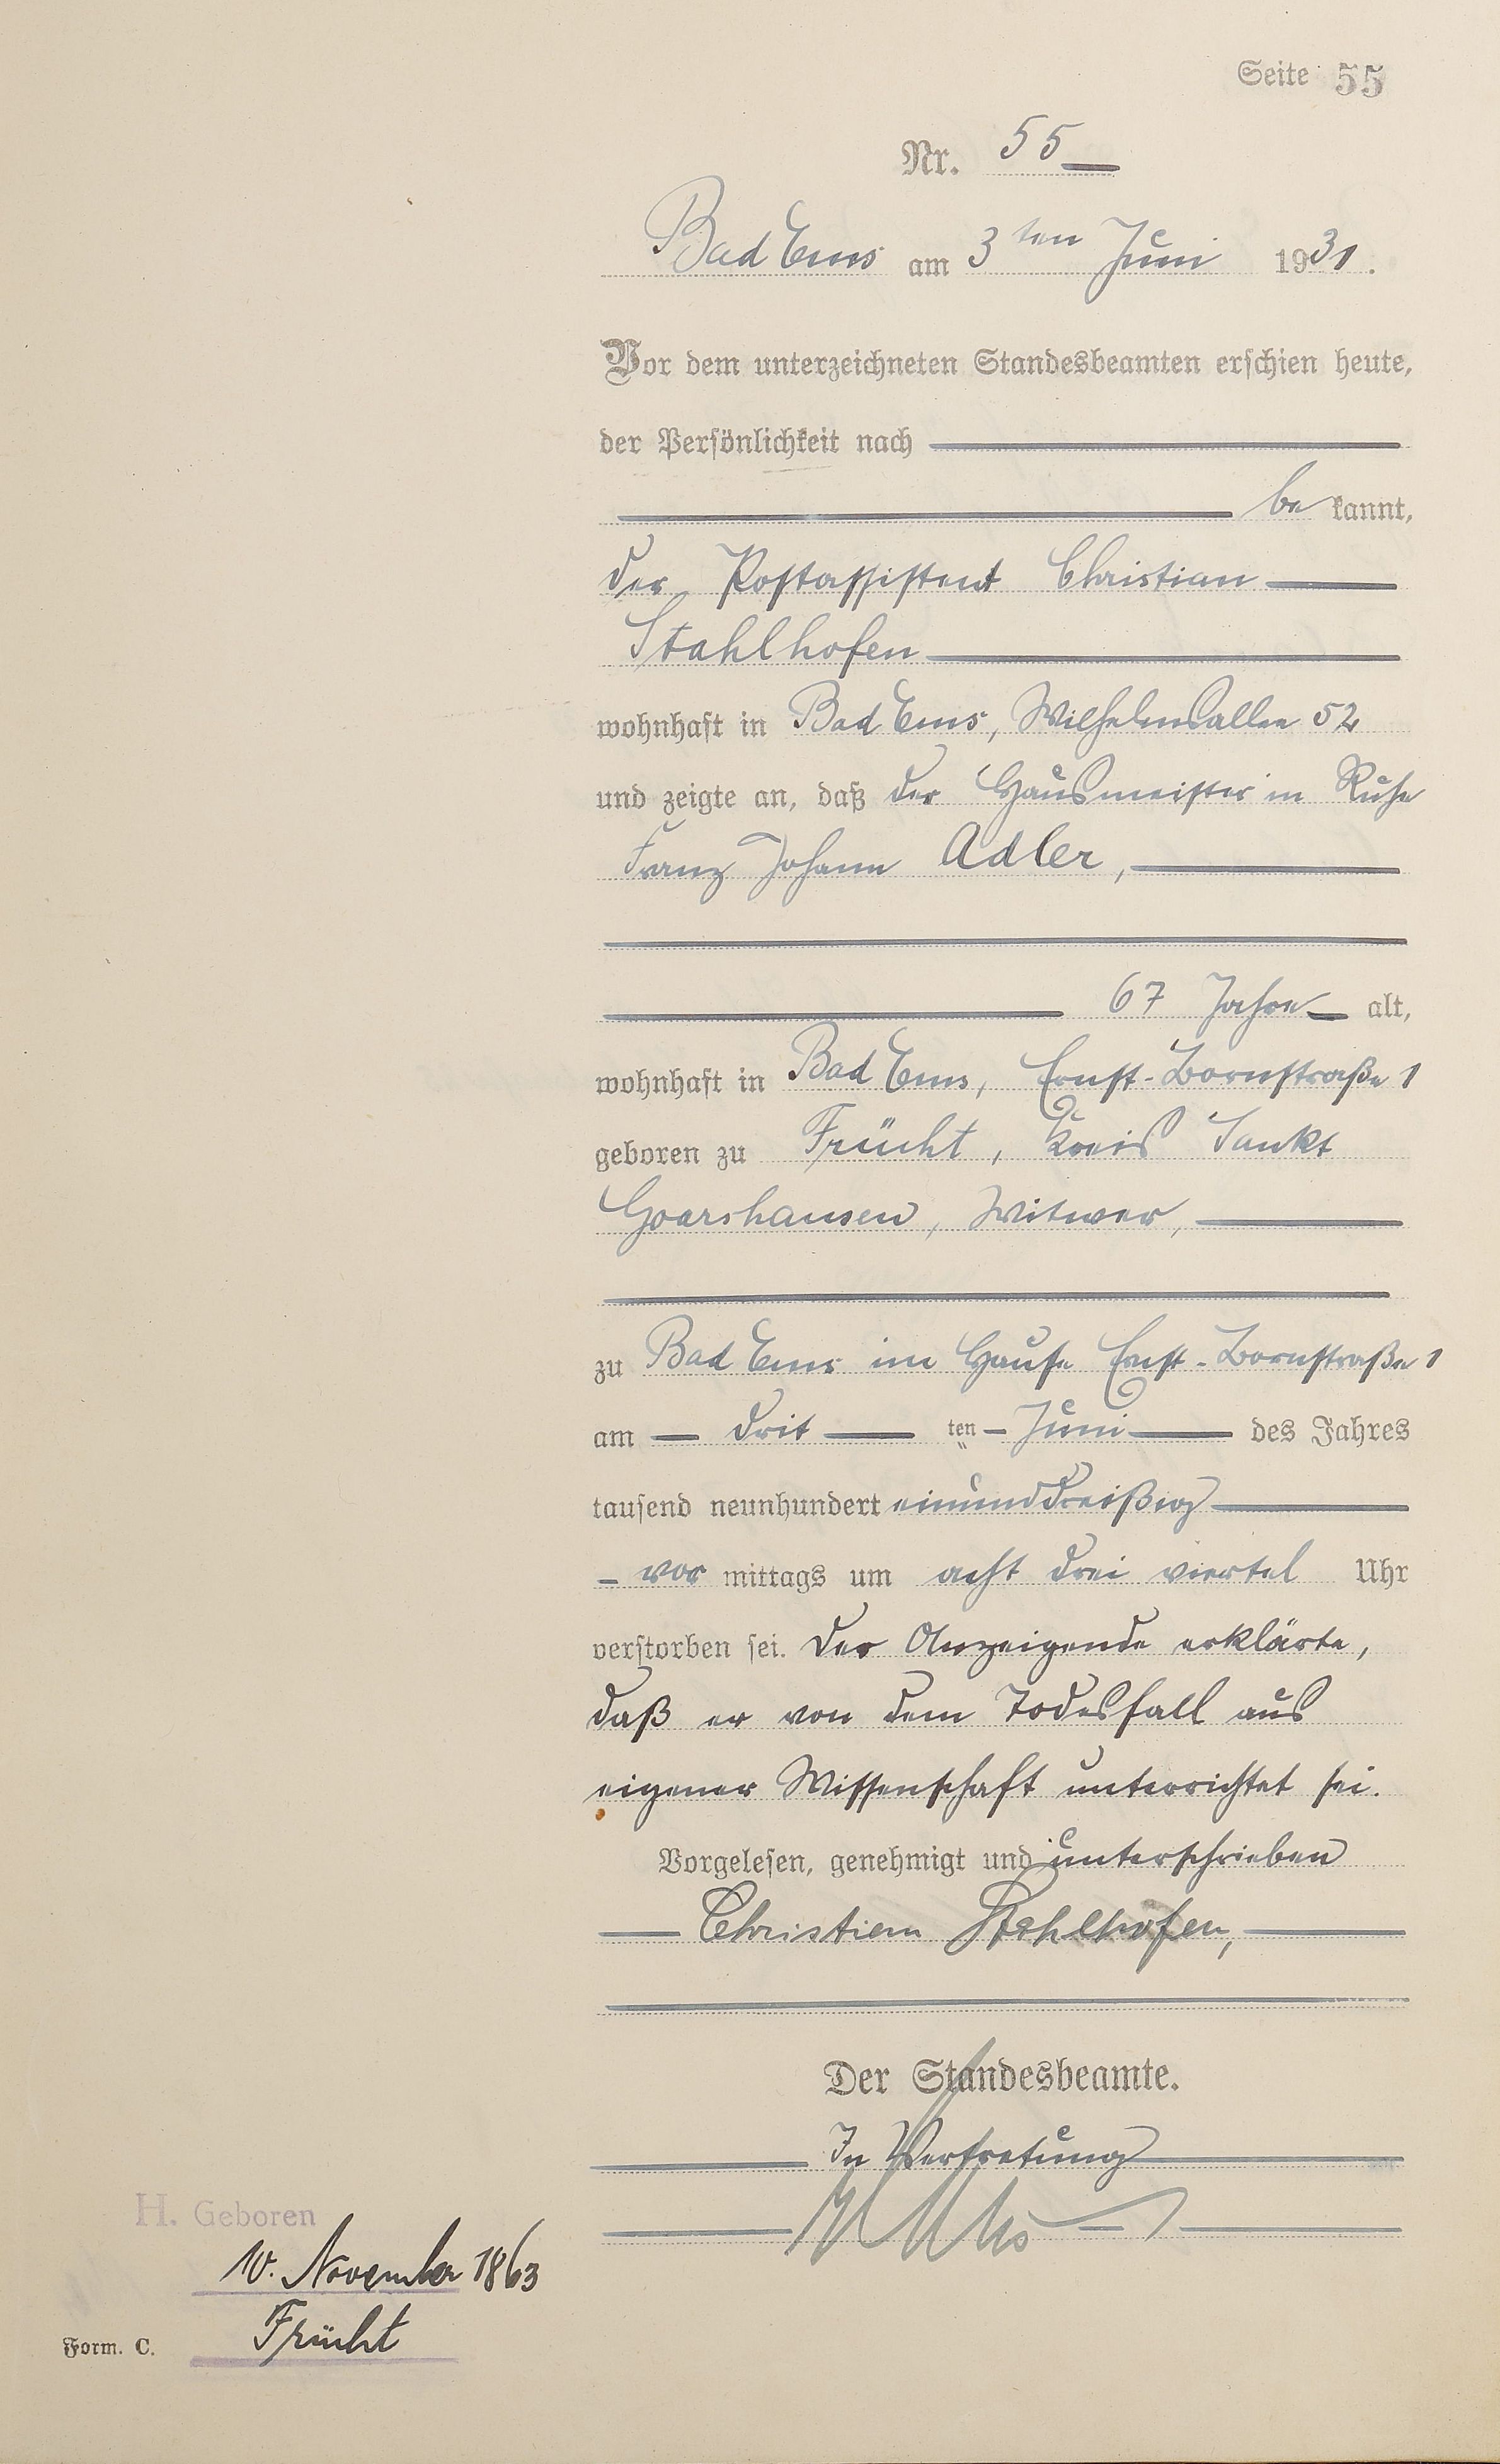 Seite 55
Nr. 55
Bad Ems am 3ten Juni 1931.
Vor dem unterzeichneten Standesbeamten erschien heute,
der Persönlichkeit nach
be kannt,
der Postassistent Christian
Stahlhofen
wohnhaft in Bad Ems, Wilhelmsallee 52
und zeigte an, daß der Hausmeister in Ruhe
Franz Johann Adler,
67 Jahre alt,
wohnhaft in Bad Ems, Ernst-Bornstraße 1
geboren zu Frücht, Kreis Sankt
Goarshausen, Witwer,
zu Bad Ems im Hause Ernst-Bornstraße 1
am drit ten Juni des Jahres
tausend neunhundert einunddreißig
vor mittags um acht drei viertel Uhr
verstorben sei. Der Anzeigende erklärte,
daß er von dem Todesfall aus
eigener Wissenschaft unterrichtet sei.
Vorgelesen, genehmigt und unterschrieben
Christian Stahlhofen,
Der Standesbeamte.
In Vertretung
H. Geboren
10. November 1863
Frücht
Form. C.